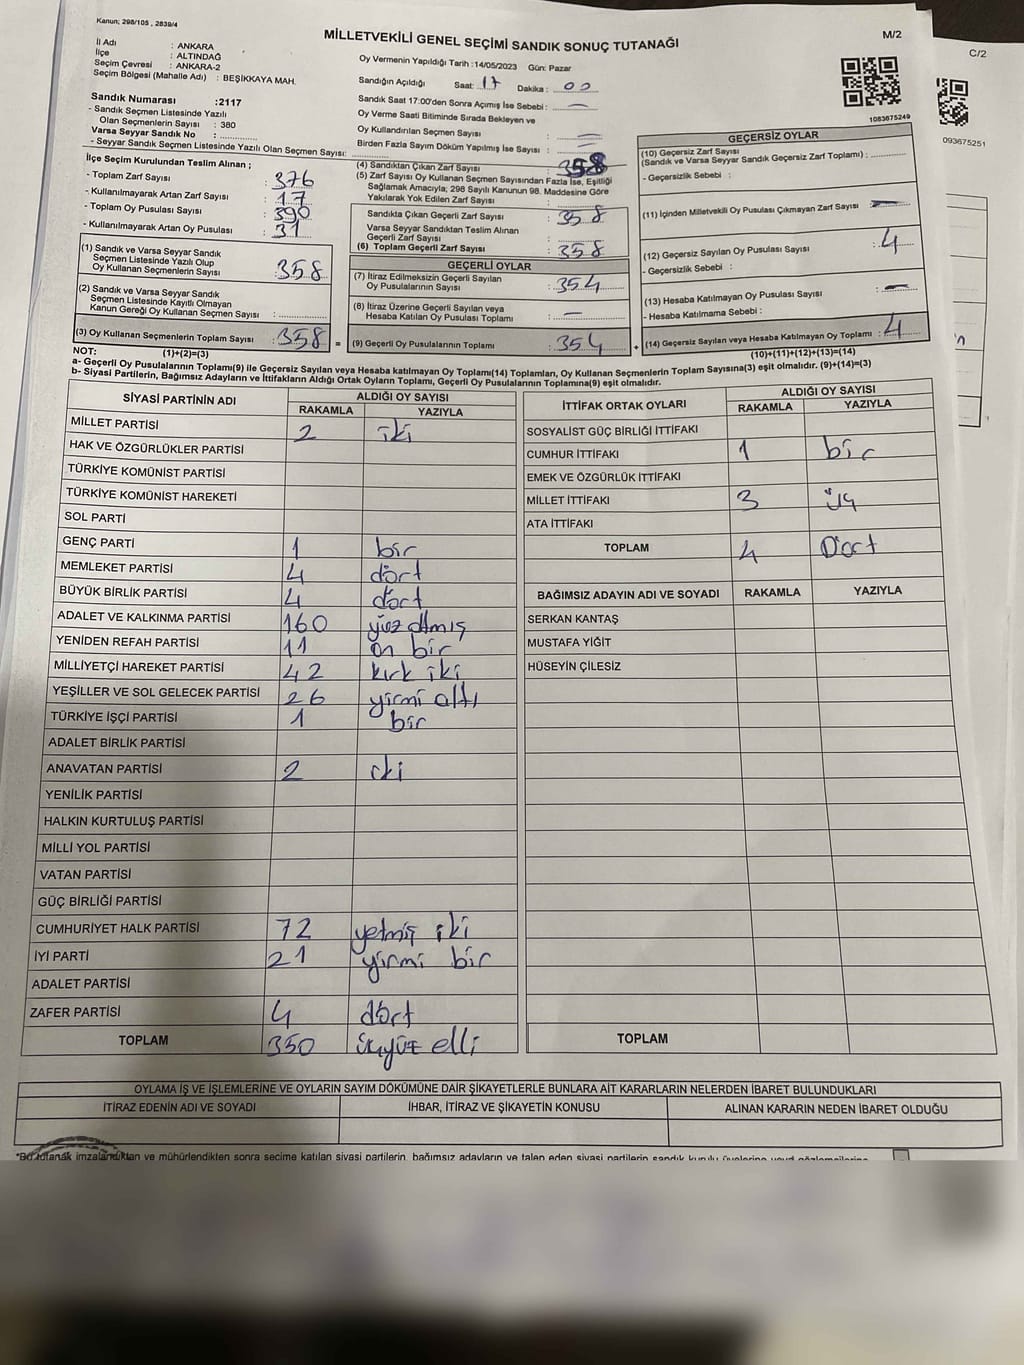 Kanun; 298/105 , 2839/4
MİLLETVEKİLİ GENEL SEÇİMİ SANDIK SONUÇ TUTANAĞI
M/2
C/2
İl Adı : ANKARA
İlçe : ALTINDAĞ
Seçim Çevresi : ANKARA-2
Seçim Bölgesi (Mahalle Adı) : BEŞİKKAYA MAH.
Oy Vermenin Yapıldığı Tarih :14/05/2023 Gün: Pazar
Sandığın Açıldığı Saat: 17 Dakika : 00
Sandık Saat 17:00'den Sonra Açımış İse Sebebi : —
Oy Verme Saati Bitiminde Sırada Bekleyen ve
Oy Kullandırılan Seçmen Sayısı : —
Birden Fazla Sayım Döküm Yapılmış İse Sayısı : —
1083675249
093675251
Sandık Numarası :2117
- Sandık Seçmen Listesinde Yazılı
Olan Seçmenlerin Sayısı : 380
Varsa Seyyar Sandık No :
- Seyyar Sandık Seçmen Listesinde Yazılı Olan Seçmen Sayısı:
İlçe Seçim Kurulundan Teslim Alınan ;
- Toplam Zarf Sayısı : 376
- Kullanılmayarak Artan Zarf Sayısı : 17
- Toplam Oy Pusulası Sayısı : 390
- Kullanılmayarak Artan Oy Pusulası : 31
(1) Sandık ve Varsa Seyyar Sandık
Seçmen Listesinde Yazılı Olup
Oy Kullanan Seçmenlerin Sayısı : 358
(2) Sandık ve Varsa Seyyar Sandık
Seçmen Listesinde Kayıtlı Olmayan
Kanun Gereği Oy Kullanan Seçmen Sayısı :
(3) Oy Kullanan Seçmenlerin Toplam Sayısı : 358 =
(4) Sandıktan Çıkan Zarf Sayısı : 358
(5) Zarf Sayısı Oy Kullanan Seçmen Sayısından Fazla İse, Eşitliği
Sağlamak Amacıyla; 298 Sayılı Kanunun 98. Maddesine Göre
Yakılarak Yok Edilen Zarf Sayısı :
Sandıkta Çıkan Geçerli Zarf Sayısı : 358
Varsa Seyyar Sandıktan Teslim Alınan
Geçerli Zarf Sayısı :
(6) Toplam Geçerli Zarf Sayısı : 358
GEÇERLİ OYLAR
(7) İtiraz Edilmeksizin Geçerli Sayılan
Oy Pusulalarının Sayısı : 354
(8) İtiraz Üzerine Geçerli Sayılan veya
Hesaba Katılan Oy Pusulası Toplamı : —
(9) Geçerli Oy Pusulalarının Toplamı : 354 +
GEÇERSİZ OYLAR
(10) Geçersiz Zarf Sayısı
(Sandık ve Varsa Seyyar Sandık Geçersiz Zarf Toplamı) :
- Geçersizlik Sebebi :
(11) İçinden Milletvekili Oy Pusulası Çıkmayan Zarf Sayısı : —
(12) Geçersiz Sayılan Oy Pusulası Sayısı : 4
- Geçersizlik Sebebi :
(13) Hesaba Katılmayan Oy Pusulası Sayısı : —
- Hesaba Katılmama Sebebi :
(14) Geçersiz Sayılan veya Hesaba Katılmayan Oy Toplamı : 4
NOT: (1)+(2)=(3)
(10)+(11)+(12)+(13)=(14)
a- Geçerli Oy Pusulalarının Toplamı(9) ile Geçersiz Sayılan veya Hesaba katılmayan Oy Toplamı(14) Toplamları, Oy Kullanan Seçmenlerin Toplam Sayısına(3) eşit olmalıdır. (9)+(14)=(3)
b- Siyasi Partilerin, Bağımsız Adayların ve İttifakların Aldığı Ortak Oyların Toplamı, Geçerli Oy Pusulalarının Toplamına(9) eşit olmalıdır.
SİYASİ PARTİNİN ADI ALDIĞI OY SAYISI
RAKAMLA YAZIYLA
MİLLET PARTİSİ 2 iki
HAK VE ÖZGÜRLÜKLER PARTİSİ
TÜRKİYE KOMÜNİST PARTİSİ
TÜRKİYE KOMÜNİST HAREKETİ
SOL PARTİ
GENÇ PARTİ 1 bir
MEMLEKET PARTİSİ 4 dört
BÜYÜK BİRLİK PARTİSİ 4 dört
ADALET VE KALKINMA PARTİSİ 160 yüz altmış
YENİDEN REFAH PARTİSİ 11 on bir
MİLLİYETÇİ HAREKET PARTİSİ 42 kırk iki
YEŞİLLER VE SOL GELECEK PARTİSİ 26 yirmi altı
TÜRKİYE İŞÇİ PARTİSİ 1 bir
ADALET BİRLİK PARTİSİ
ANAVATAN PARTİSİ 2 iki
YENİLİK PARTİSİ
HALKIN KURTULUŞ PARTİSİ
MİLLİ YOL PARTİSİ
VATAN PARTİSİ
GÜÇ BİRLİĞİ PARTİSİ
CUMHURİYET HALK PARTİSİ 72 yetmiş iki
İYİ PARTİ 21 yirmi bir
ADALET PARTİSİ
ZAFER PARTİSİ 4 dört
TOPLAM 350 üçyüz elli
İTTİFAK ORTAK OYLARI ALDIĞI OY SAYISI
RAKAMLA YAZIYLA
SOSYALİST GÜÇ BİRLİĞİ İTTİFAKI
CUMHUR İTTİFAKI 1 bir
EMEK VE ÖZGÜRLÜK İTTİFAKI
MİLLET İTTİFAKI 3 üç
ATA İTTİFAKI
TOPLAM 4 Dört
BAĞIMSIZ ADAYIN ADI VE SOYADI RAKAMLA YAZIYLA
SERKAN KANTAŞ
MUSTAFA YİĞİT
HÜSEYİN ÇİLESİZ
TOPLAM
OYLAMA İŞ VE İŞLEMLERİNE VE OYLARIN SAYIM DÖKÜMÜNE DAİR ŞİKAYETLERLE BUNLARA AİT KARARLARIN NELERDEN İBARET BULUNDUKLARI
İTİRAZ EDENİN ADI VE SOYADI İHBAR, İTİRAZ VE ŞİKAYETİN KONUSU ALINAN KARARIN NEDEN İBARET OLDUĞU
*Bu tutanak imzalandıktan ve mühürlendikten sonra seçime katılan siyasi partilerin, bağımsız adayların ve talep eden siyasi partilerin sandık kurulu